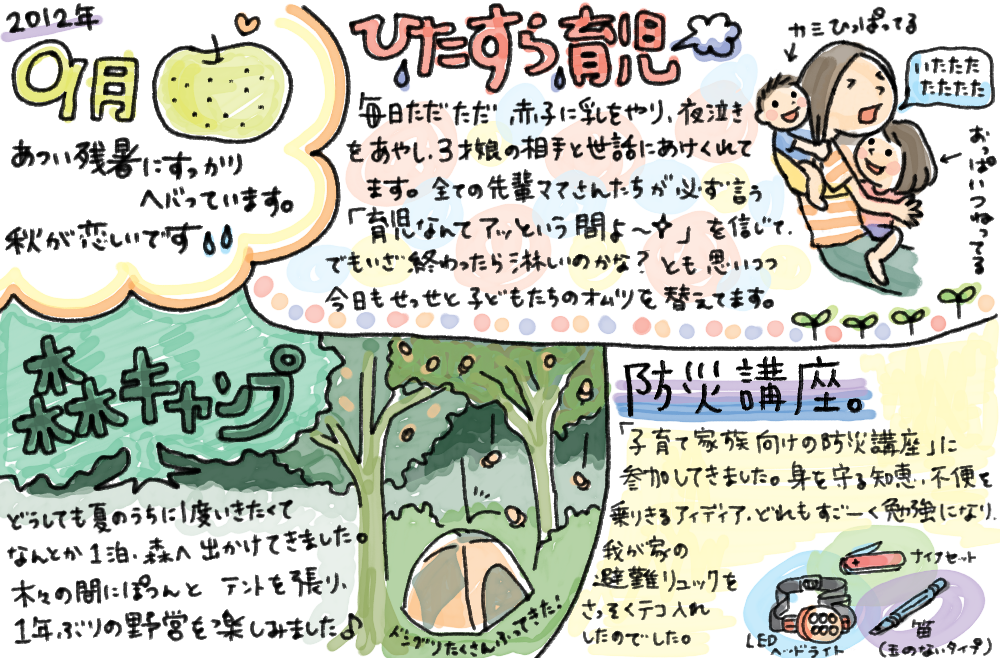 2012年
9月
あつい残暑にすっかり
へバっています。
秋が恋しいです
ひたすら育児
毎日ただただ 赤子に乳をやり、夜泣き
をあやし、3才娘の相手と世話にあけくれて
ます。全ての先輩ママさんたちが必ず言う
「育児なんてアッという間よ〜☆」を信じて、
でもいざ終わったら淋しいのかな？とも思いつつ
今日もせっせと子どもたちのオムツを替えてます。
カミひっぱってる
いたたた
たたたた
おっぱいつねってる
森キャンプ
どうしても夏のうちに1度いきたくて
なんとか1泊、森へ出かけてきました。
木々の間にぽつんと テントを張り、
1年ぶりの野営を楽しみました♪
ドングリたくさんふってきた!
防災講座。
「子育て家族向けの防災講座」に
参加してきました。身を守る知恵、不便を
乗りきるアイディア、どれもすごーく勉強になり、
我が家の
避難リュックを
さっそくテコ入れ
したのでした。
ナイフセット
LED
ヘッドライト
笛
(玉のないタイプ)